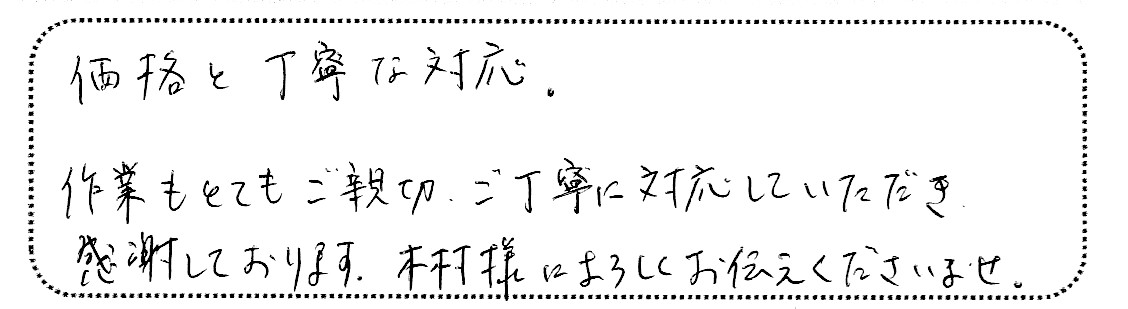 価格と丁寧な対応。
作業もとてもご親切、ご丁寧に対応していただき
感謝しております。木村様によろしくお伝えくださいませ。